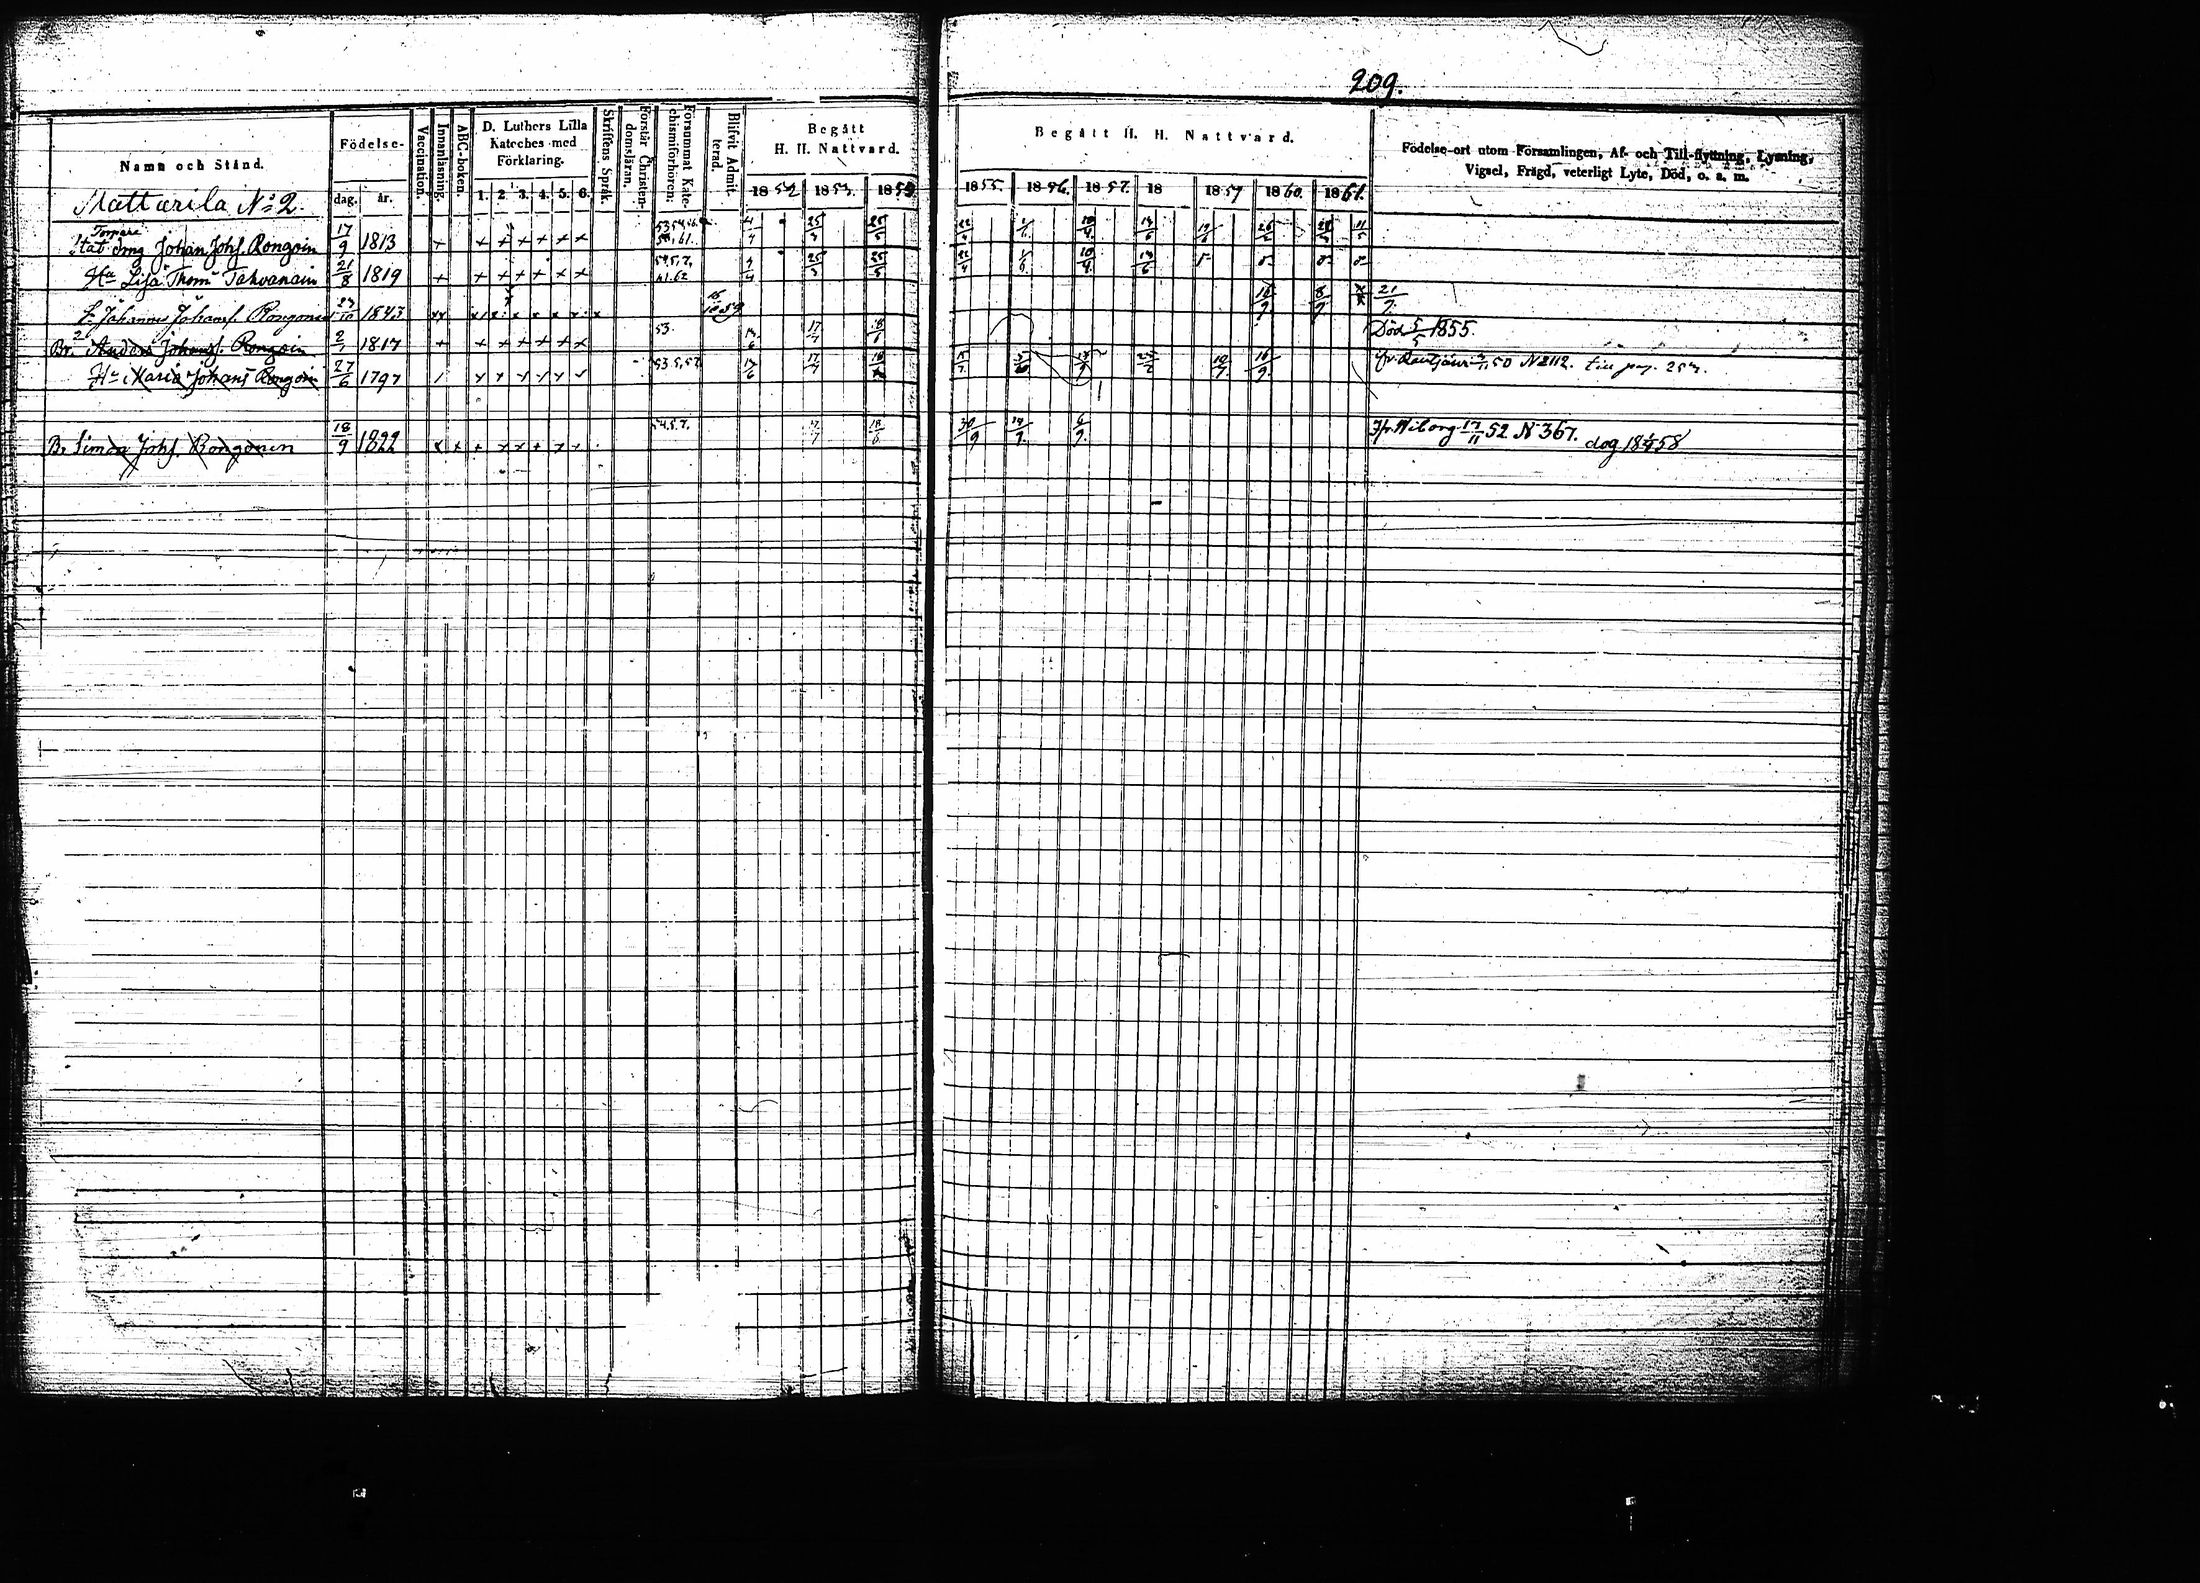 209.
Namn och Stånd.
Födelse-
dag. år.
Vaccination.
Innanläsning.
ABC-boken.
D. Luthers Lilla
Kateches med
Förklaring.
1. 2. 3. 4. 5. 6.
Skriftens Språk.
Förstår Christen-
domsläran.
Försummat Kate-
chismiförhören:
Blifvit Admit-
terad.
Begått
H. H. Nattvard.
1852 1853. 1853
Begått H. H. Nattvard.
1855. 1856. 1857. 18 1859 1860. 1861.
Födelse-ort utom Församlingen, Af- och Till-flyttning, Lysning,
Vigsel, Frägd, veterligt Lyte, Död, o. s. m.
Mattärila No 2.
Torpare
Johan Johs. Rongoin 17/9 1813 + + + + + + + 25/3 25/5 22/4 10/4
Ha Lisa Thoms Tahvanain 21/8 1819 + + + + + + + 61.62 4/4 25/3 25/5 22/4 10/4
Johannes Johans. Rongonen 1843 1859 16/9 8/9 21/9
Br. Anders Johans. Rongoin 2/7 1817 + + + + + + + 53. 17/7 18/6 Död 5/5 1855.
Ha Maria Johans Rongoin 27/6 1797 17/6 17/7 16/9 50 N 2112. till pag. 257.
Br Simon Johs. Rongonen 18/9 1822 54.5.7. 17/7 18/6 30/9 6/9. Ifr. Wiborg 17/11 52 N 367. dog 18 58